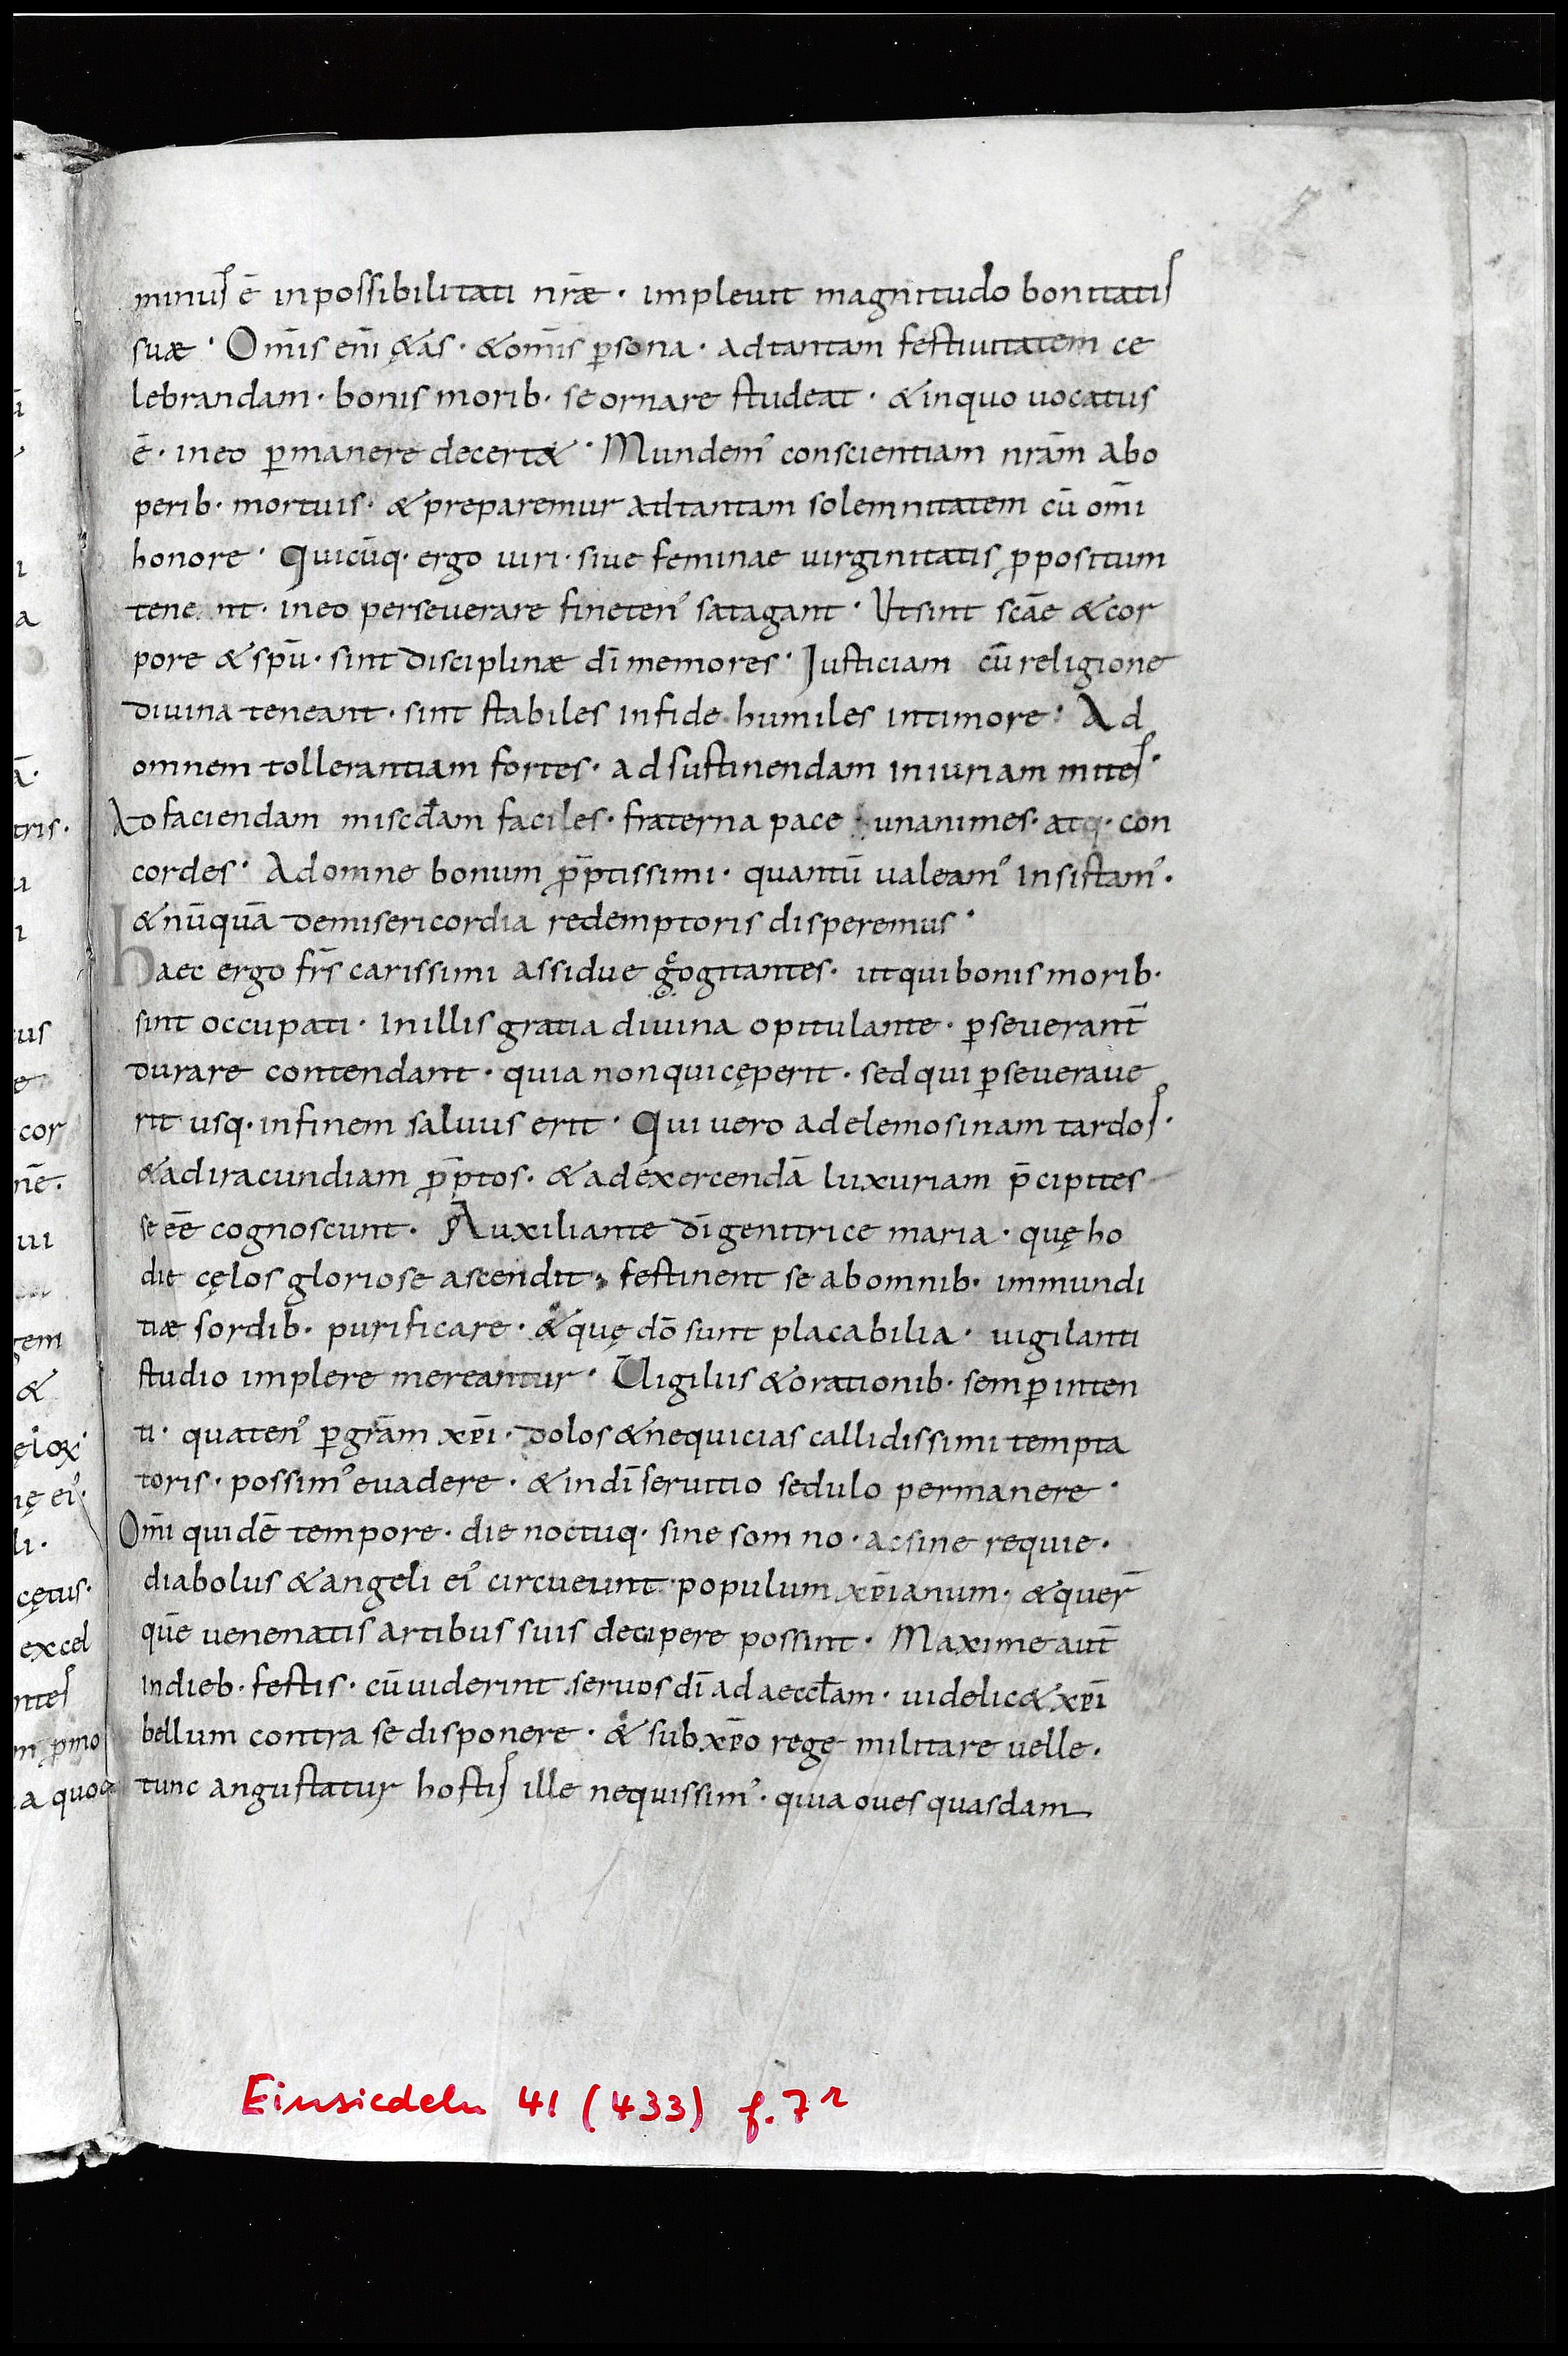 minus ē inpossibilitati nr̄æ · impleuit magnitudo bonitatis
suæ · Om̄is eni̅ ę&as · & om̄is p̱sona · ad tantam festiuitatem ce
lebrandam · bonis morib· se ornare studeat · & in quo uocatus
ē · in eo p̱manere decert& · Mundem᾽ conscientiam nr̄am abo
perib· mortuis · & preparemur ad tantam solemnitatem cū om̄i
honore · Quicūq· ergo uiri · siue feminae uirginitatis ꝓpositum
tene nt · in eo perseuerare fineten᾽ satagant · Ut sint sc̄ae & cor
pore & sp̄u · sint disciplinæ dī memores · Iusticiam cū religione
diuina teneant · sint stabiles in fide · humiles in timore · Ad
omnem tollerantiam fortes · ad sustinendam iniuriam mites ·
Ad faciendam miscd̄am faciles · fraterna pace unanimes · atq· con
cordes · Ad omne bonum ꝓ̄ptissimi · quantū ualeam᾽ insistam᾽ ·
& nūquā de misericordia redemptoris disperemus ·
haec ergo fr̄s carissimi assidue gͨogitantes · ut qui bonis morib·
sint occupati · In illis gratia diuina opitulante · p̱seuerant̄
durare contendant · quia non qui cęperit · sed qui p̱seueraue
rit usq· in finem saluus erit · Qui uero ad elemosinam tardos ·
& ad iracundiam ꝓ̄ptos · & ad exercendā luxuriam p̄cipites
se eē cognoscunt · Auxiliante dī genitrice maria · quę ho
die cęlos gloriose ascendit · festinent se ab omnib· immundi
tiæ sordib· purificare · & quę dō sunt placabilia · uigilanti
studio implere mereantur · Uigiliis & orationib· semp̱ inten
ti · quaten᾽ p̱ gr̄am xp̄i · dolos & nequicias callidissimi tempta
toris · possim᾽ euadere · & in dī seruitio sedulo permanere ·
Om̄i quidē tempore · die noctuq· sine somno · ac sine requie ·
diabolus & angeli ei᾽ circueunt populum xp̄ianum · & quer̄
quē uenenatis artibus suis decipere possint · Maxime aut̄
in dieb· festis · cū uiderint seruos dī ad aeccl̄am · uidelic& xp̄i
bellum contra se disponere · & sub xp̄o rege militare uelle ·
tunc angustatur hostis ille nequissim᾽ · quia oues quasdam
Einsiedeln 41 (433) f. 7r